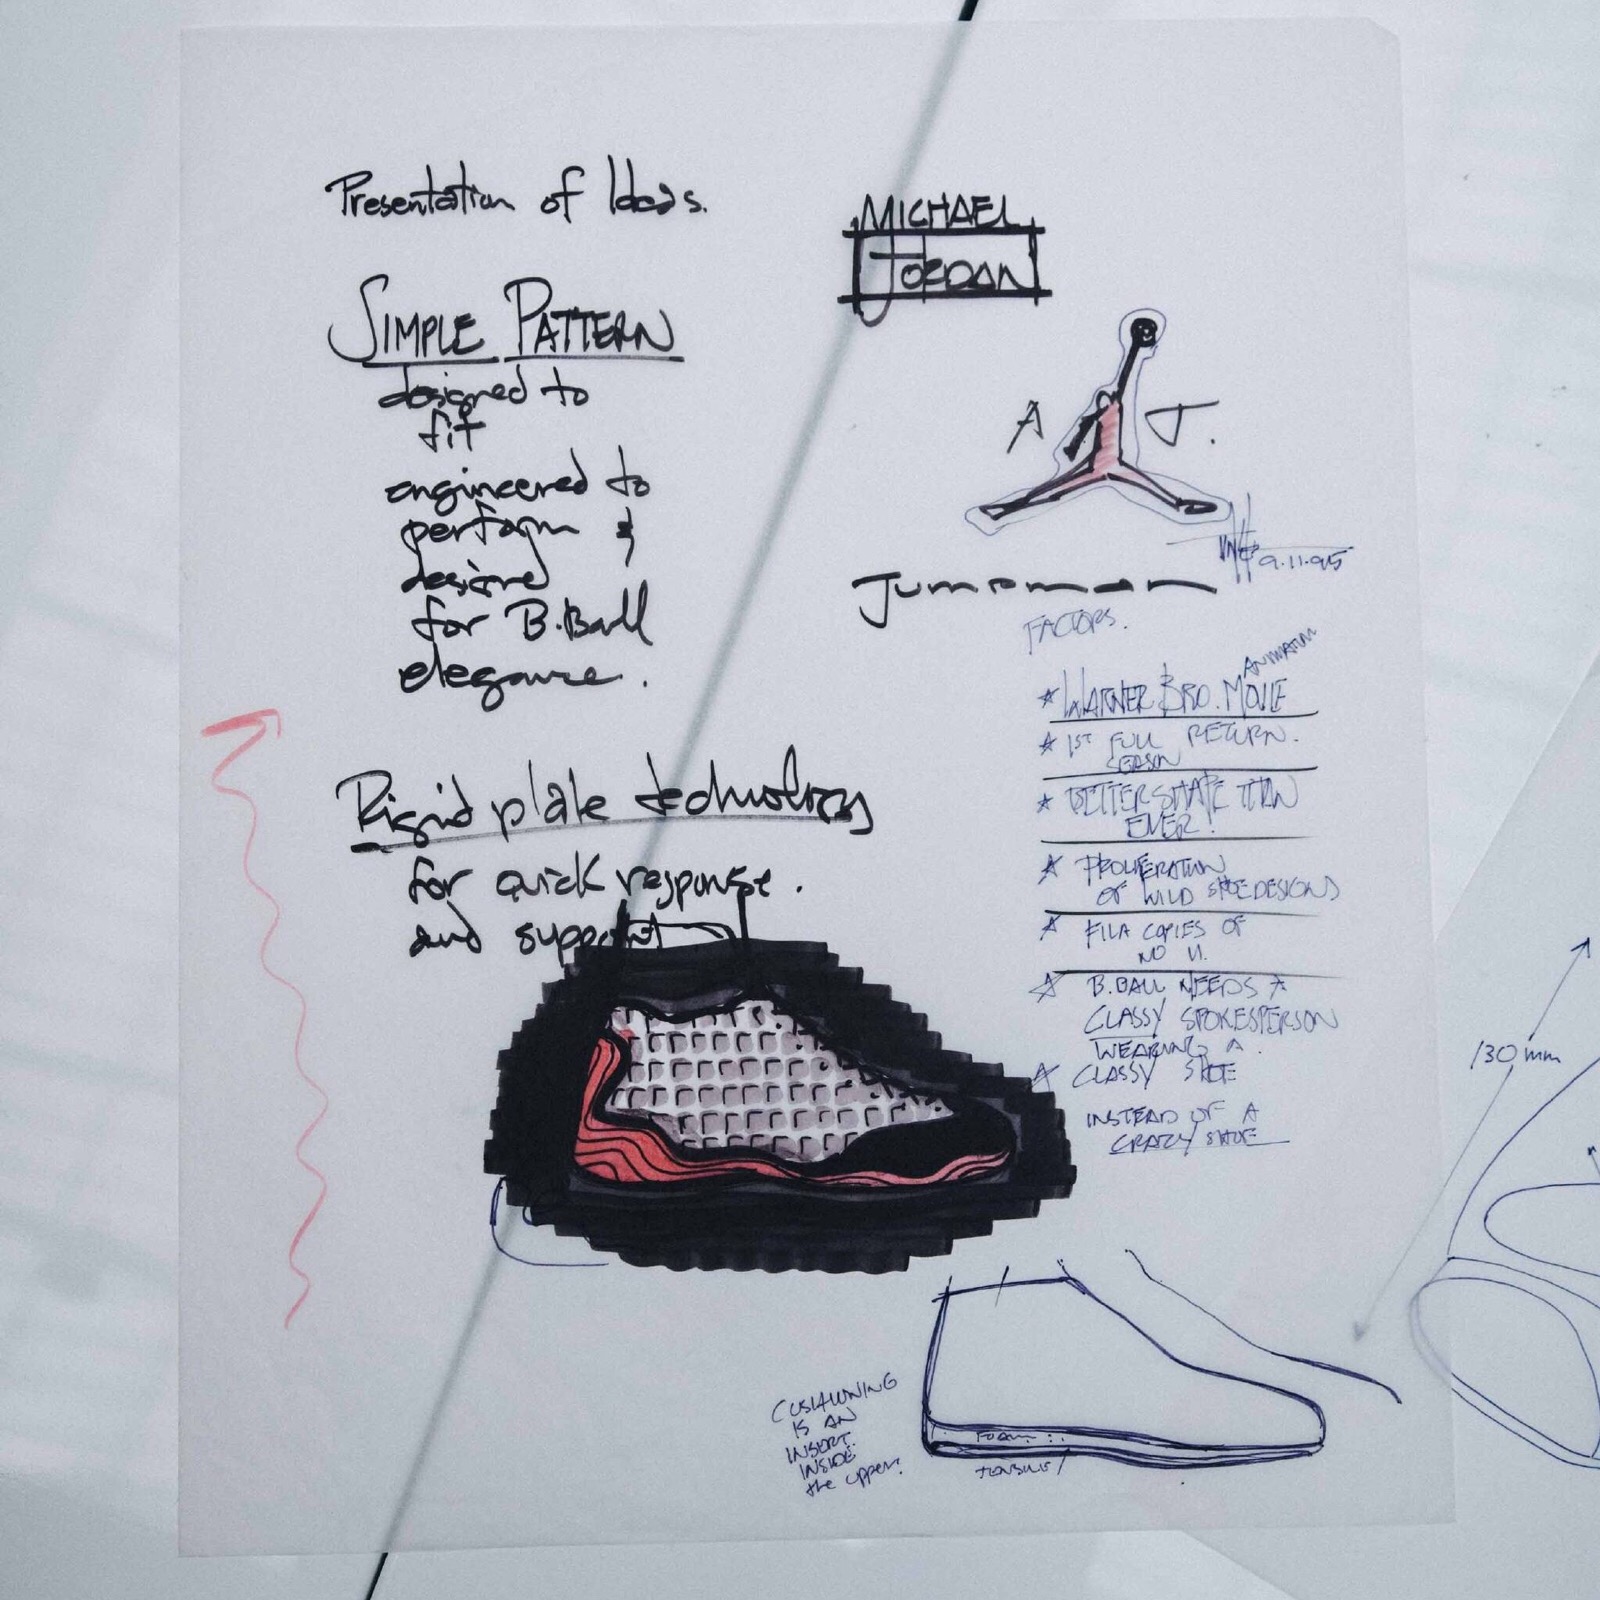 Presentation of Ideas.
SIMPLE PATTERN
designed to
fit
engineered to
perform &
designed
for B.Ball
elegance.
Rigid plate technology
for quick response.
and support
MICHAEL
JORDAN
A J.
9.11.95
Jumpman
FACTORS.
ANIMATION
* WARNER BRO. MOVIE
* 1ST FULL RETURN.
SEASON
* BETTER SHAPE THAN
EVER!
* PROLIFERATION
OF WILD SHOE DESIGNS
* FILA COPIES OF
NO 11.
* B.BALL NEEDS A
CLASSY SPOKESPERSON
WEARING A.
* CLASSY SHOE
INSTEAD OF A
CRAZY SHOE
130mm
CUSHIONING
IS AN
INSERT.
INSIDE
the upper.
FOAM
TENSILE/